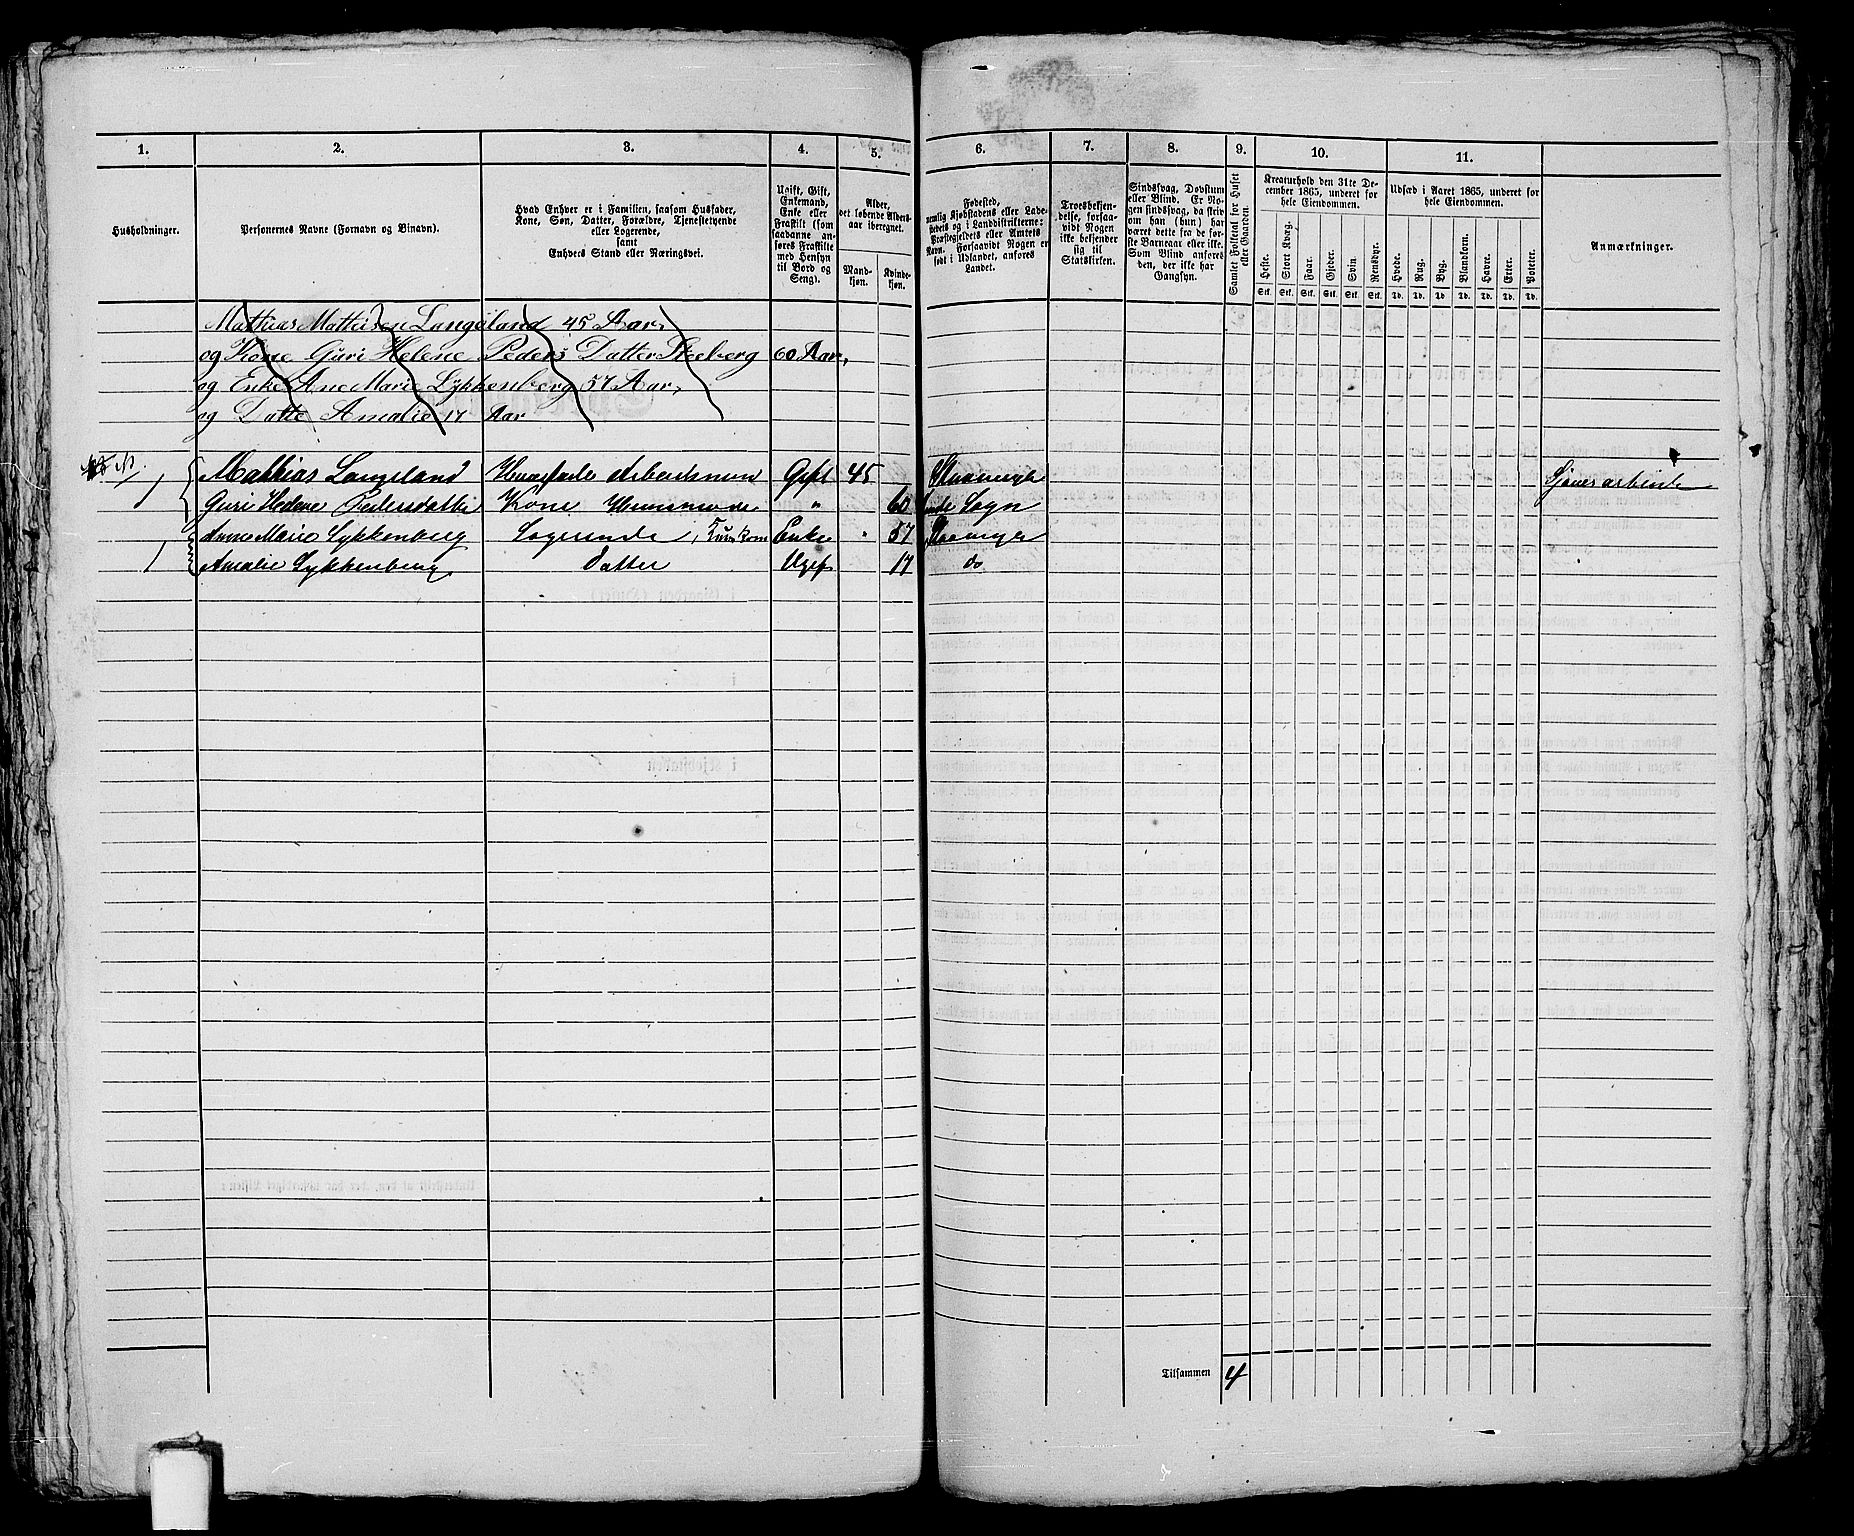 1.
2.
3.
4.
5.
6.
7.
8.
9.
10.
11.
Husholdninger.
Personernes Navne (Fornavn og Binavn).
Hvad Enhver er i Familien, saasom Husfader,
Kone, Søn, Datter, Forældre, Tjenestetyende
eller Logerende,
samt
Enhvers Stand eller Næringsvei.
Ugift, Gift,
Enkemand,
Enke eller
Fraskilt (som
saadanne an-
føres Fraskilte
med Hensyn
til Bord og
Seng).
Alder,
det løbende Alders-
aar iberegnet.
Mand-
kjøn.
Kvinde-
kjøn.
Fødested,
nemlig Kjøbstadens eller Lade-
stedets og i Landdistrikterne:
Præstegjeldets eller Amtets
Navn. Forsaavidt Nogen er
født i Udlandet, anføres
Landet.
Troesbekjen-
delse, forsaa-
vidt Nogen
ikke bekjender
sig til
Statskirken.
Sindssvag, Døvstum
eller Blind. Er No-
gen sindssvag, da skriv
om han (hun) har
været dette fra de før-
ste Barneaar eller ikke.
Som Blind anføres
den, der ikke har
Gangsyn.
Samlet Folketal for Huset
eller Gaarden.
Kreaturhold den 31te De-
cember 1865, underet for
hele Eiendommen.
Heste.
Stort Kvæg.
Faar.
Gjeder.
Svin.
Rensdyr.
Stk. Stk. Stk. Stk. Stk. Stk.
Udsæd i Aaret 1865, underet for
hele Eiendommen.
Hvede.
Rug.
Byg.
Blandkorn.
Havre.
Erter.
Poteter.
Td. Td. Td. Td. Td. Td. Td.
Anmærkninger.
Mathias Mathisen Langeland 45 Aar,
og Kone Guri Helene Peders Datter 60 Aar,
og Enke Ane Marie Lykkenberg 57 Aar,
og Datte Amalie 17 Aar
1 Mathias Langeland Gift 45 Stavanger
Guri Helene Pedersdatter Kone " 60 Sogn
1 Anne Marie Lykkenberg Logerende, Enke " 57 Stavanger
Amalie Lykkenberg Datter Ugift 17 do
Tilsammen 4